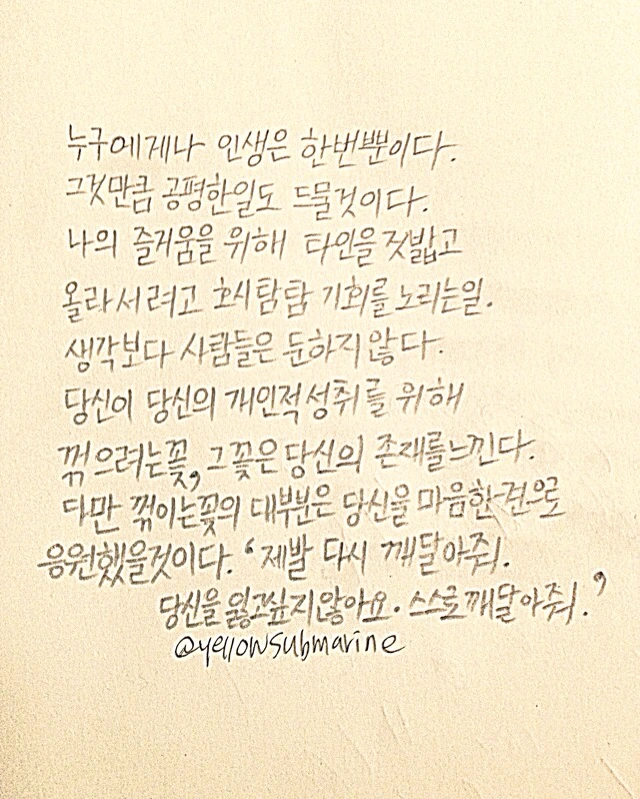 누구에게나 인생은 한번뿐이다.
그것만큼 공평한일도 드물것이다.
나의 즐거움을 위해 타인을 짓밟고
올라서려고 호시탐탐 기회를 노리는일.
생각보다 사람들은 둔하지 않다.
당신이 당신의 개인적성취를 위해
꺾으려는꽃, 그꽃은 당신의 존재를느낀다.
다만 꺾이는꽃의 대부분은 당신을 마음한켠으로
응원했을것이다. ‘제발 다시 깨달아줘.
당신을 잃고싶지않아요. 스스로깨달아줘.’
@yellowsubmarine